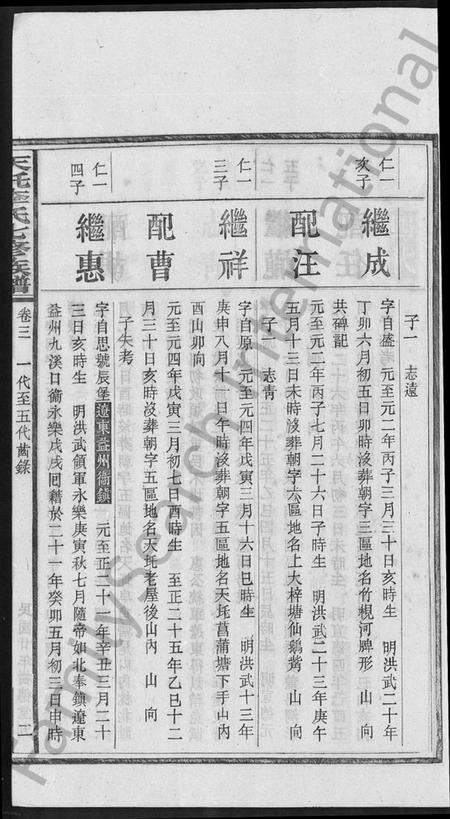 子一 志遠
仁一
次子
繼成
字自盛 元至元二年丙子三月三十日亥時生 明洪武二十年
丁卯六月初五日卯時沒葬朝字三區地名竹梘河牌形 山 向
共碑記
配汪
元至元二年丙子七月二十六日子時生 明洪武二十三年庚午
五月十三日未時沒葬朝字六區地名上大梓塘仙鵝嘴 山 向
子一 志靑
仁一
三子
繼祥
字自原 元至元四年戊寅三月十六日巳時生 明洪武十三年
庚申八月十一日午時沒葬朝字五區地名天圫菖蒲塘下手山內
酉山卯向
配曹
元至元四年戊寅三月初七日酉時生 至正二十五年乙巳十二
月三十日亥時沒葬朝字五區地名天圫老屋後山內 山 向
子失考
仁一
四子
繼惠
字自思號辰堡遼東益州衞鎮 元至正二十一年辛丑三月二十
三日亥時生 明洪武領軍永樂庚寅秋七月隨帝如北奉鎮遼東
益州九溪口衞永樂戊戌回籍於二十一年癸卯五月初三日申時
氏七修族譜
卷三 一代至五代齒錄
二
FamilySearch International